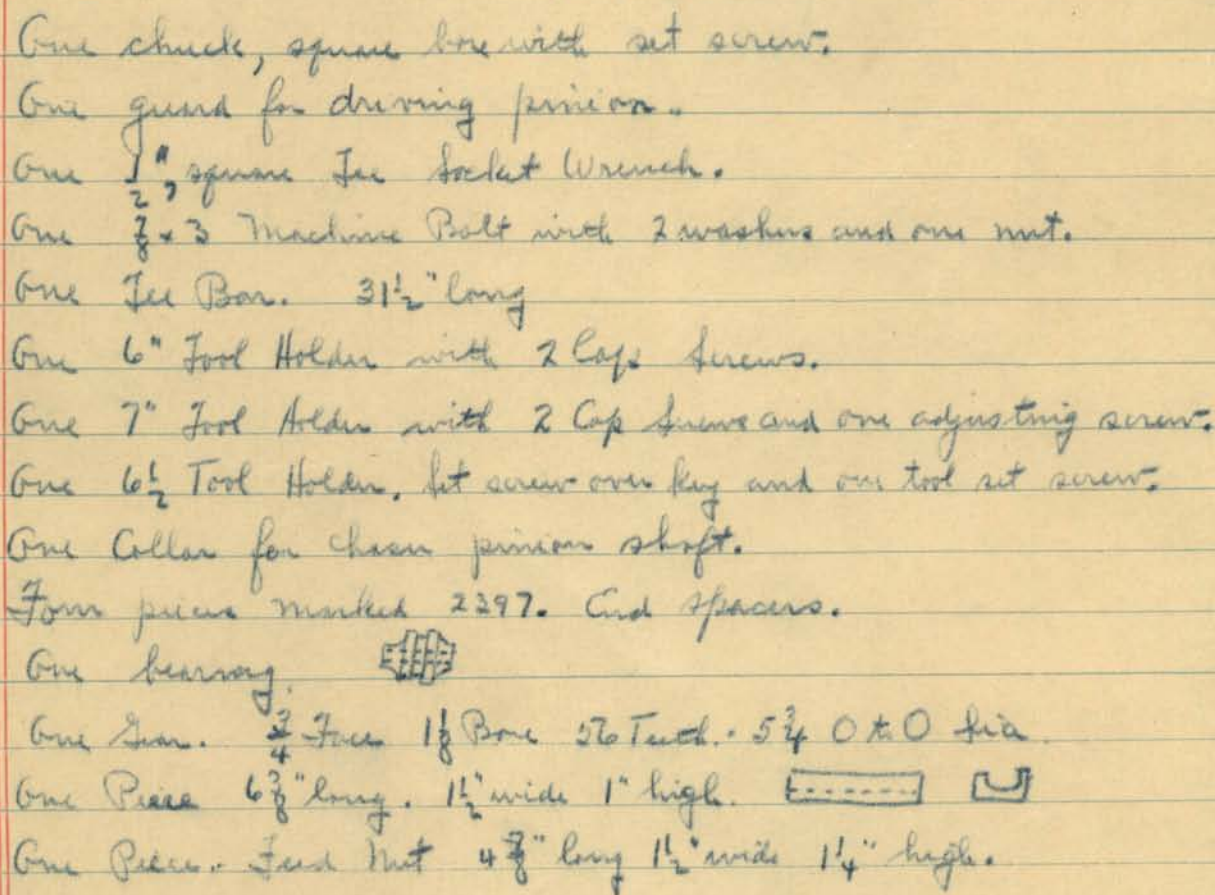 One chuck, square bore with set screw.
One guard for driving pinion.
One 1/2", square Tee Socket Wrench.
One 7/8 x 3 Machine Bolt with 2 washers and one nut.
One Tee Bar. 31 1/2" long
One 6" Tool Holder with 2 Cap Screws.
One 7" Tool Holder with 2 Cap Screws and one adjusting screw.
One 6 1/2 Tool Holder. Set screw over key and one tool set screw.
One Collar for chaser pinion shaft.
Four pieces marked 2397. End spacers.
One bearing.
One Gear. 3/4 Face 1 1/8 Bore 56 Teeth. 5 3/4 O to O Dia
One Piece 6 3/8" long. 1 1/2" wide 1" high.
One Piece. Feed Nut 4 7/8" long 1 1/2" wide 1 1/4" high.